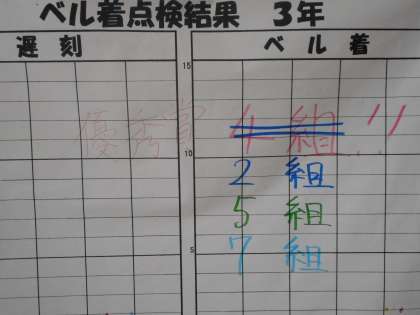 ベル着点検結果 3年
遅刻 ベル着
15
優秀賞 4組!!
10
2 組
5 組
7 組
5